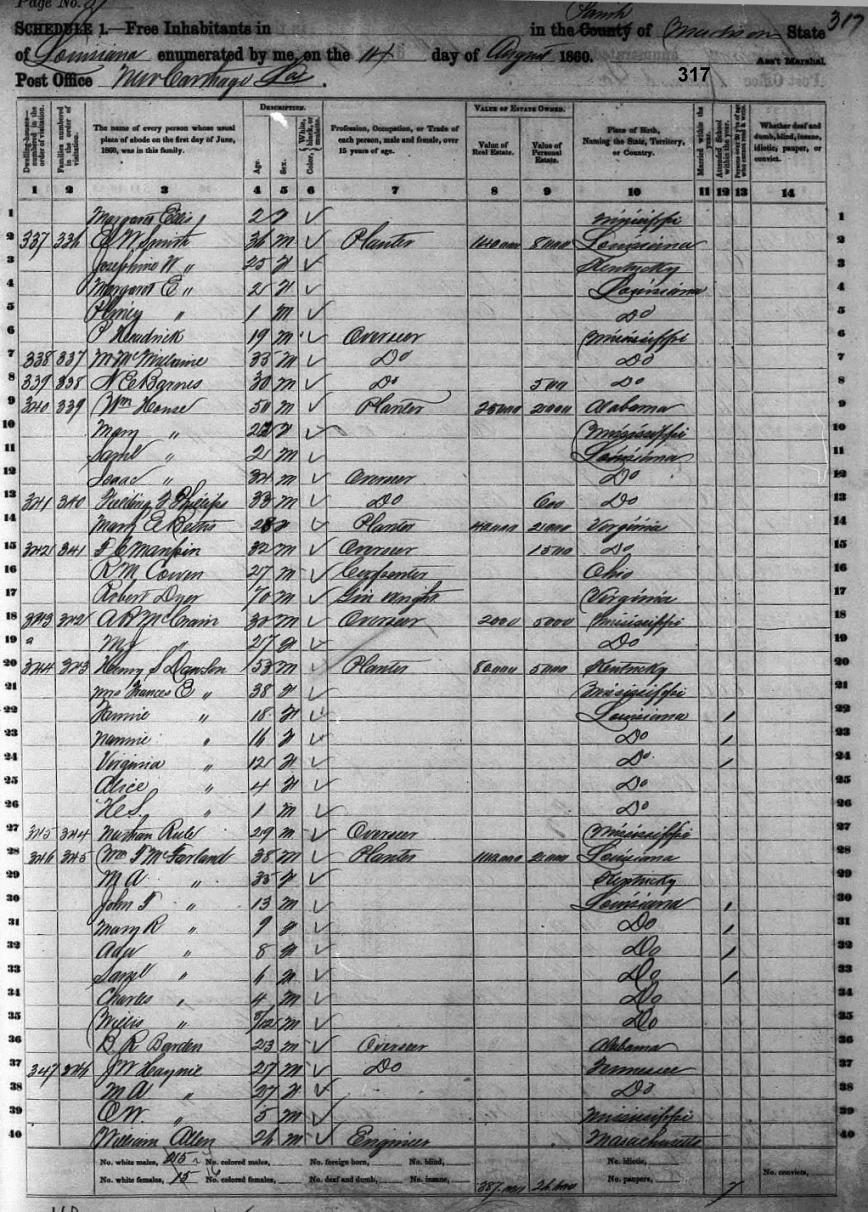 Page No.
SCHEDULE 1.—Free Inhabitants in Parish in the County of Madison State 317
of Louisiana enumerated by me, on the 14 day of August 1860. Ass't Marshal.
Post Office New Carthage La. 317
Dwelling-houses—numbered in the order of visitation. Families numbered in the order of visitation. The name of every person whose usual place of abode on the first day of June, 1860, was in this family. DESCRIPTION. Age. Sex. Color, White, black, or mulatto. Profession, Occupation, or Trade of each person, male and female, over 15 years of age. VALUE OF ESTATE OWNED. Value of Real Estate. Value of Personal Estate. Place of Birth, Naming the State, Territory, or Country. Married within the year. Attended School within the year. Whether deaf and dumb, blind, insane, idiotic, pauper, or convict.
1 2 3 4 5 6 7 8 9 10 11 12 13 14
1 Margaret Ellis ✓ Mississippi 1
2 337 336 E W Smith 36 M ✓ Planter 8000 Louisiana 2
3 Josephine W " 25 F ✓ Kentucky 3
4 Margaret E " 2 F ✓ Louisiana 4
5 " 1 M ✓ Do 5
6 P Hendrick 19 M ✓ Overseer Mississippi 6
7 338 337 33 M ✓ Do Do 7
8 339 338 N E Barnes 30 M ✓ Do 500 Do 8
9 340 339 Wm House 50 M ✓ Planter 25000 Alabama 9
10 Mary " F ✓ Mississippi 10
11 Saml " M ✓ Louisiana 11
12 Isaac " M ✓ Overseer Do 12
13 341 340 Phillips 33 M ✓ Do 600 Do 13
14 Mary E 28 F ✓ Planter 40000 21000 Virginia 14
15 342 341 Maupin 32 M ✓ Overseer 1500 Do 15
16 R M Cowen 27 M ✓ Carpenter Ohio 16
17 Robert Dyer 70 M ✓ Gin Wright Virginia 17
18 343 342 A B McCrain 30 M ✓ Overseer 2000 5000 Mississippi 18
19 " 27 F ✓ Do 19
20 344 343 Henry S Dawson 53 M ✓ Planter 80000 5000 Kentucky 20
21 Mrs Frances E " 38 F ✓ Mississippi 21
22 Fannie " 18 F ✓ Louisiana / 22
23 Nannie " 16 F ✓ Do / 23
24 Virginia " 12 F ✓ Do / 24
25 Alice " 4 F ✓ Do 25
26 H S " 1 M ✓ Do 26
27 345 344 Nathan Rule 29 M ✓ Overseer Mississippi 27
28 346 345 Wm F McFarland 38 M ✓ Planter Louisiana 28
29 M A " 35 F ✓ Kentucky 29
30 John F " 13 M ✓ Louisiana / 30
31 Mary R " 9 F ✓ Do / 31
32 Ada " 8 F ✓ Do / 32
33 Saml " 6 M ✓ Do / 33
34 Charles " 4 M ✓ Do 34
35 Willis " M ✓ Do 35
36 B R Barden 23 M ✓ Overseer Alabama 36
37 347 346 J W Haynie 27 M ✓ Do Tennessee 37
38 M A " 27 F ✓ Do 38
39 O W " 5 M ✓ Mississippi 39
40 William Allen 26 M ✓ Engineer Massachusetts 40
No. white males, No. colored males, No. foreign born, No. blind, No. idiotic, No. convicts,
No. white females, 15 No. colored females, No. deaf and dumb, No. insane, No. paupers, 7